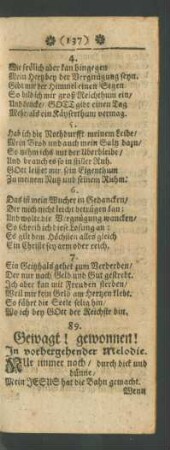 (137)
4.
Wie frölich aber kan hingegen
Mein Hertz bey der Vergnügung seyn.
Gibt mir der Himmel einen Segen
So bild ich mir groß Reichthum ein,
Und dencke, GOTT gibt einen Tag
Mehr als ein Käyserthum vermag.
5.
Hab ich die Nothdurfft meinem Leibe,
Mein Brod und auch mein Saltz dazu,
So nehm ichs mit der
Und brauch es so in stiller Ruh.
GOtt leihet mir sein Eigenthum
Zu meinem Nutz und seinem Ruhm.
6.
Das ist mein Wucher in Gedancken,
Der mich nicht leicht betrügen kan:
Und wolte der Vergnügung wancken,
So schreib ich diese Losung an:
Es gilt dem Höchsten alles gleich
Ein Christ sey arm oder reich.
7.
Ein Geitzhals gehet zum Verderben,
Der nur nach Geld und Gut gestrebt.
Ich aber kan mit Freuden sterben,
Weil mir kein Geld am Hertzen klebt.
So fähret die Seele selig hin,
Wo ich bey GOtt der Reichste bin.
89.
Gewagt! gewonnen!
In vorhergehender Melodie.
Nur immer noch, durch dick und
dünne,
Mein JESUS hat die Bahn gemacht.
Wenn